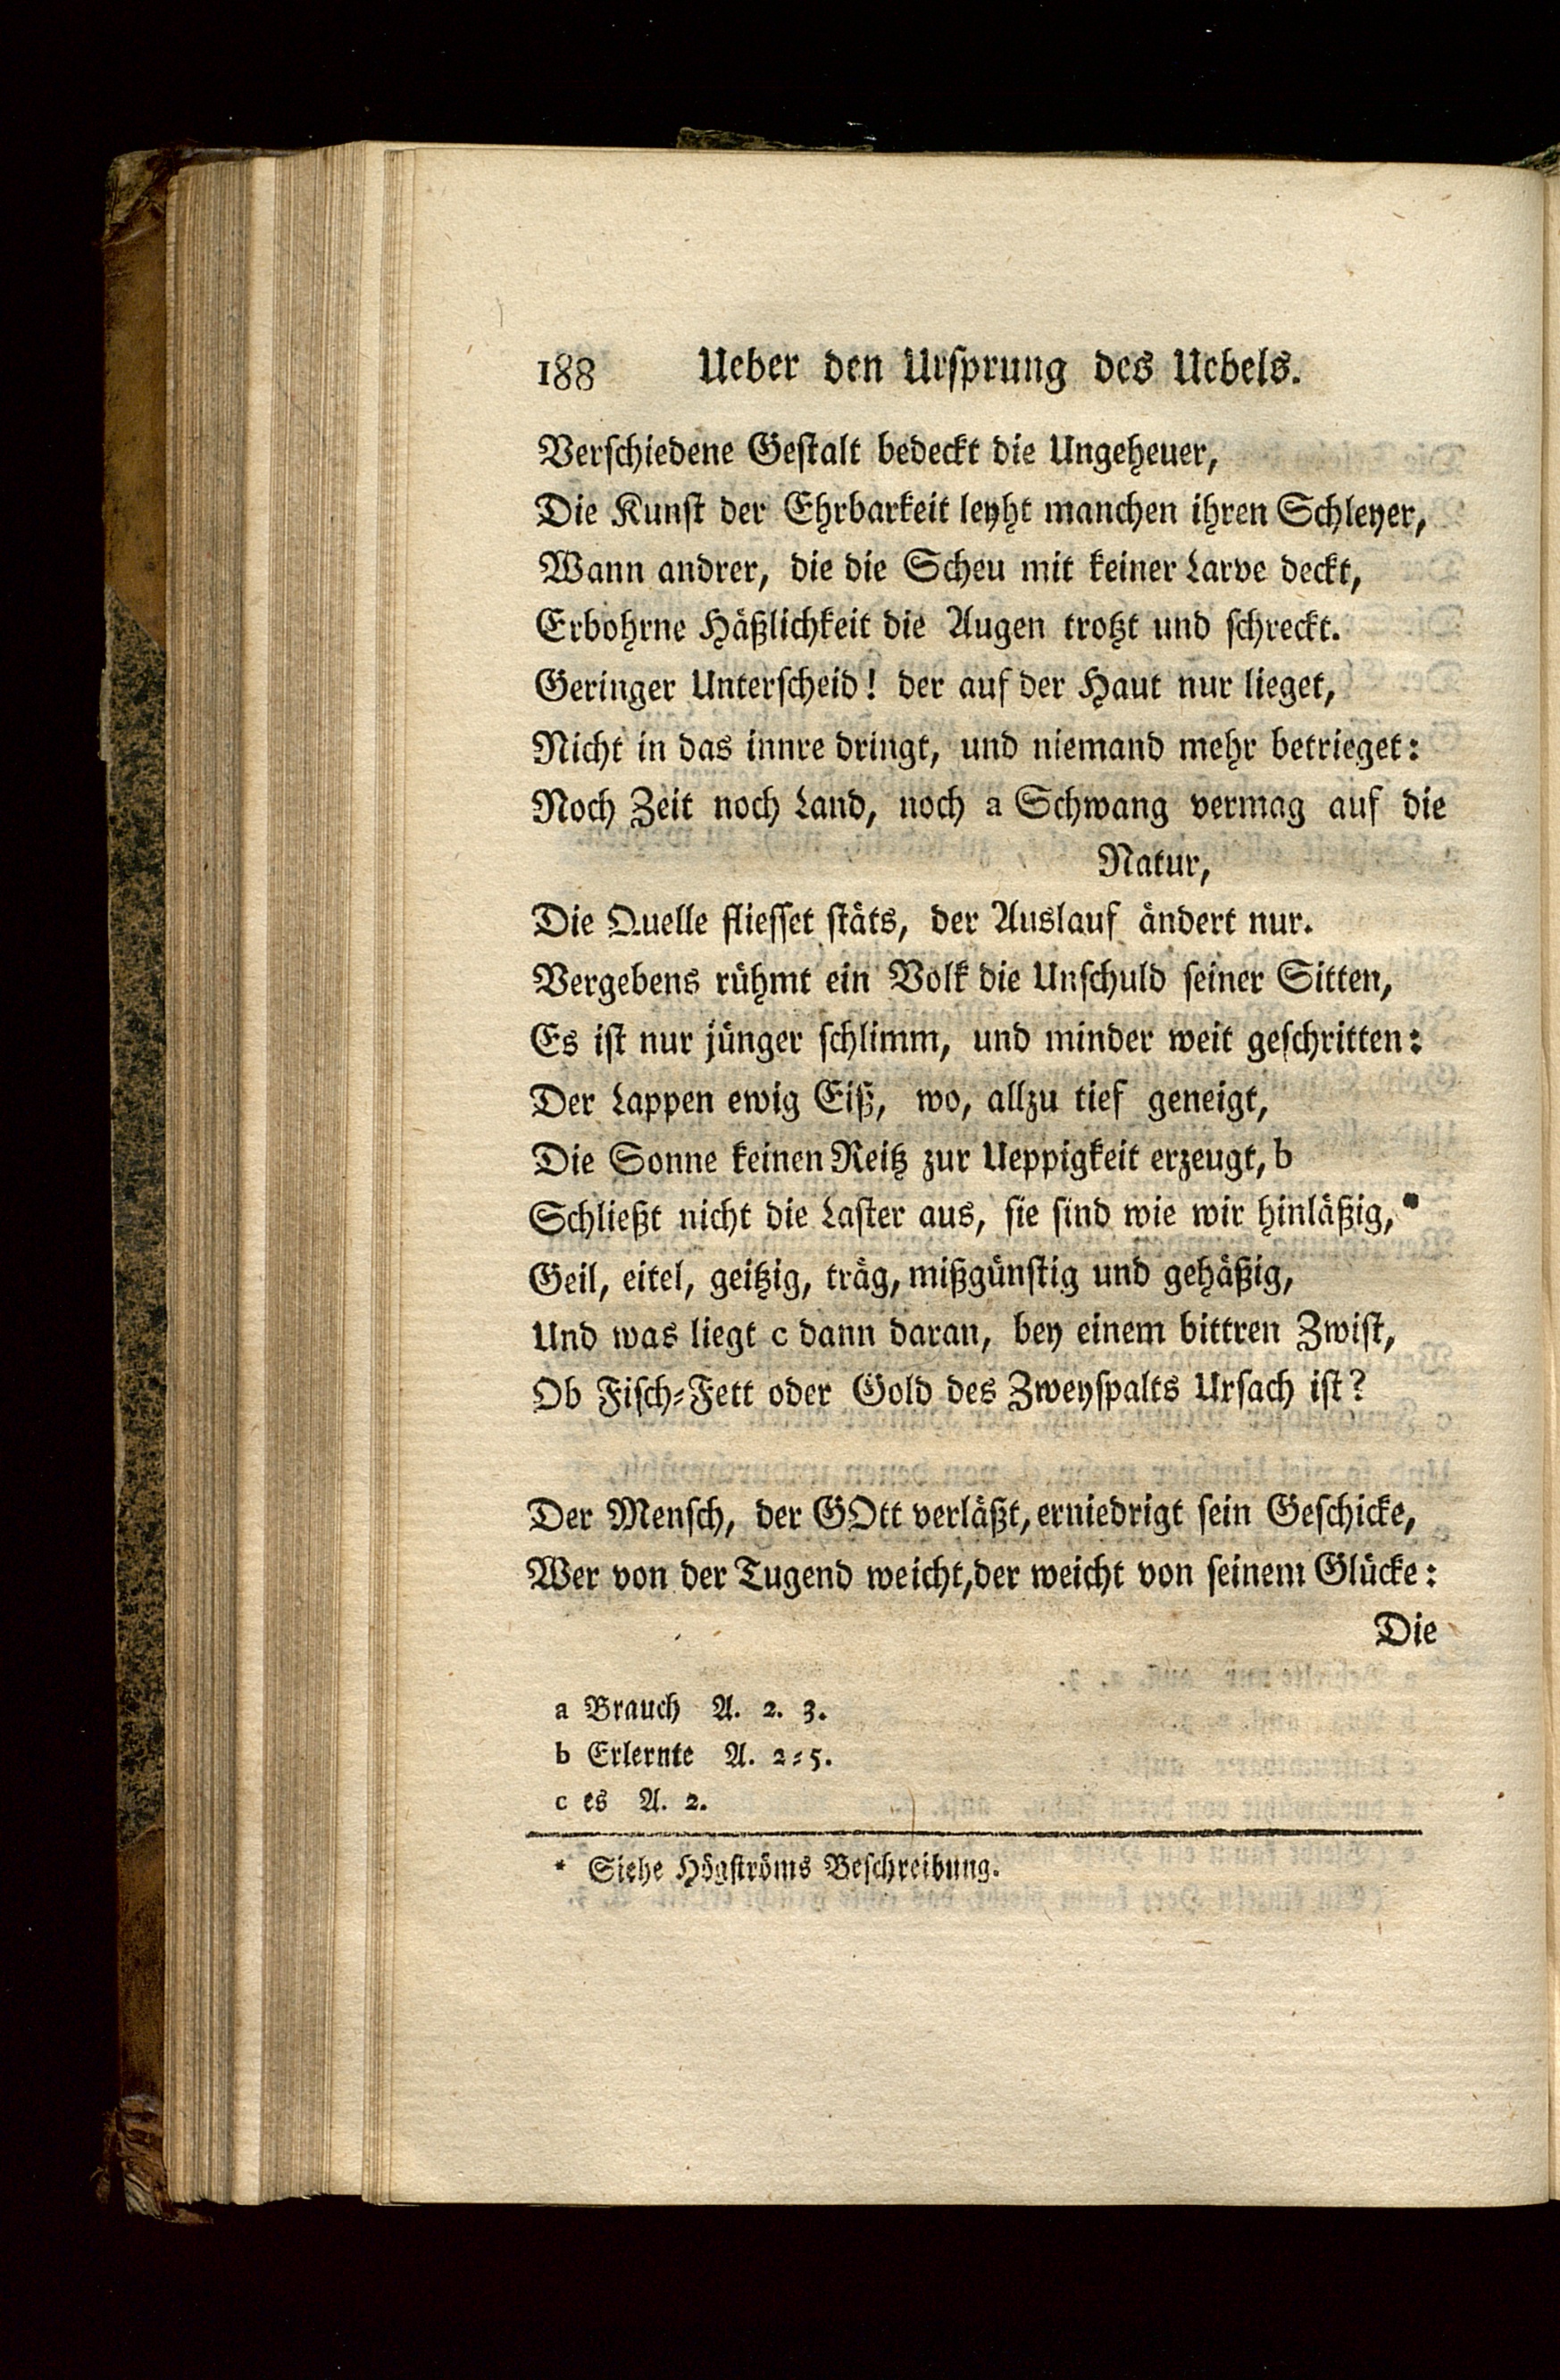 188 Ueber den Ursprung des Uebels.
Verschiedene Gestalt bedeckt die Ungeheuer,
Die Kunst der Ehrbarkeit leyht manchen ihren Schleyer,
Wann andrer, die die Scheu mit keiner Larve deckt,
Erbohrne Häßlichkeit die Augen trotzt und schreckt.
Geringer Unterscheid! der auf der Haut nur lieget,
Nicht in das innre dringt, und niemand mehr betrieget:
Noch Zeit noch Land, noch a Schwang vermag auf die
Natur,
Die Quelle fliesset stäts, der Auslauf ändert nur.
Vergebens rühmt ein Volk die Unschuld seiner Sitten,
Es ist nur jünger schlimm, und minder weit geschritten:
Der Lappen ewig Eiß, wo, allzu tief geneigt,
Die Sonne keinen Reitz zur Ueppigkeit erzeugt, b
Schließt nicht die Laster aus, sie sind wie wir hinläßig, *
Geil, eitel, geitzig, träg, mißgünstig und gehäßig,
Und was liegt c dann daran, bey einem bittren Zwist,
Ob Fisch-Fett oder Gold des Zweyspalts Ursach ist?
Der Mensch, der GOtt verläßt, erniedrigt sein Geschicke,
Wer von der Tugend weicht, der weicht von seinem Glücke:
Die
a Brauch A. 2. 3.
b Erlernte A. 2-5.
c es A. 2.
* Siehe Högströms Beschreibung.